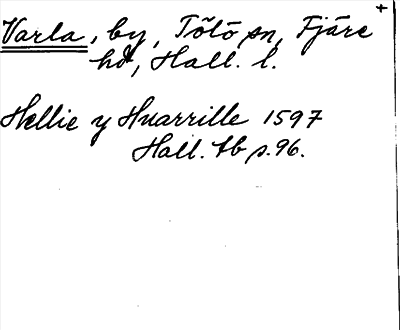 Varla, by, Tölö sn, Fjäre +
hd, Hall. l.
Hellie y Huarrille 1597
Hall. tb s. 96.